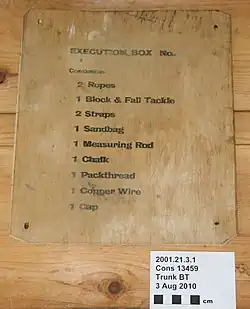 EXECUTION BOX No.
Contents
2 Ropes
1 Block & Fall Tackle
2 Straps
1 Sandbag
1 Measuring Rod
1 Chalk
1 Packthread
1 Copper Wire
1 Cap
2001.21.3.1
Cons 13459
Trunk BT
3 Aug 2010
cm